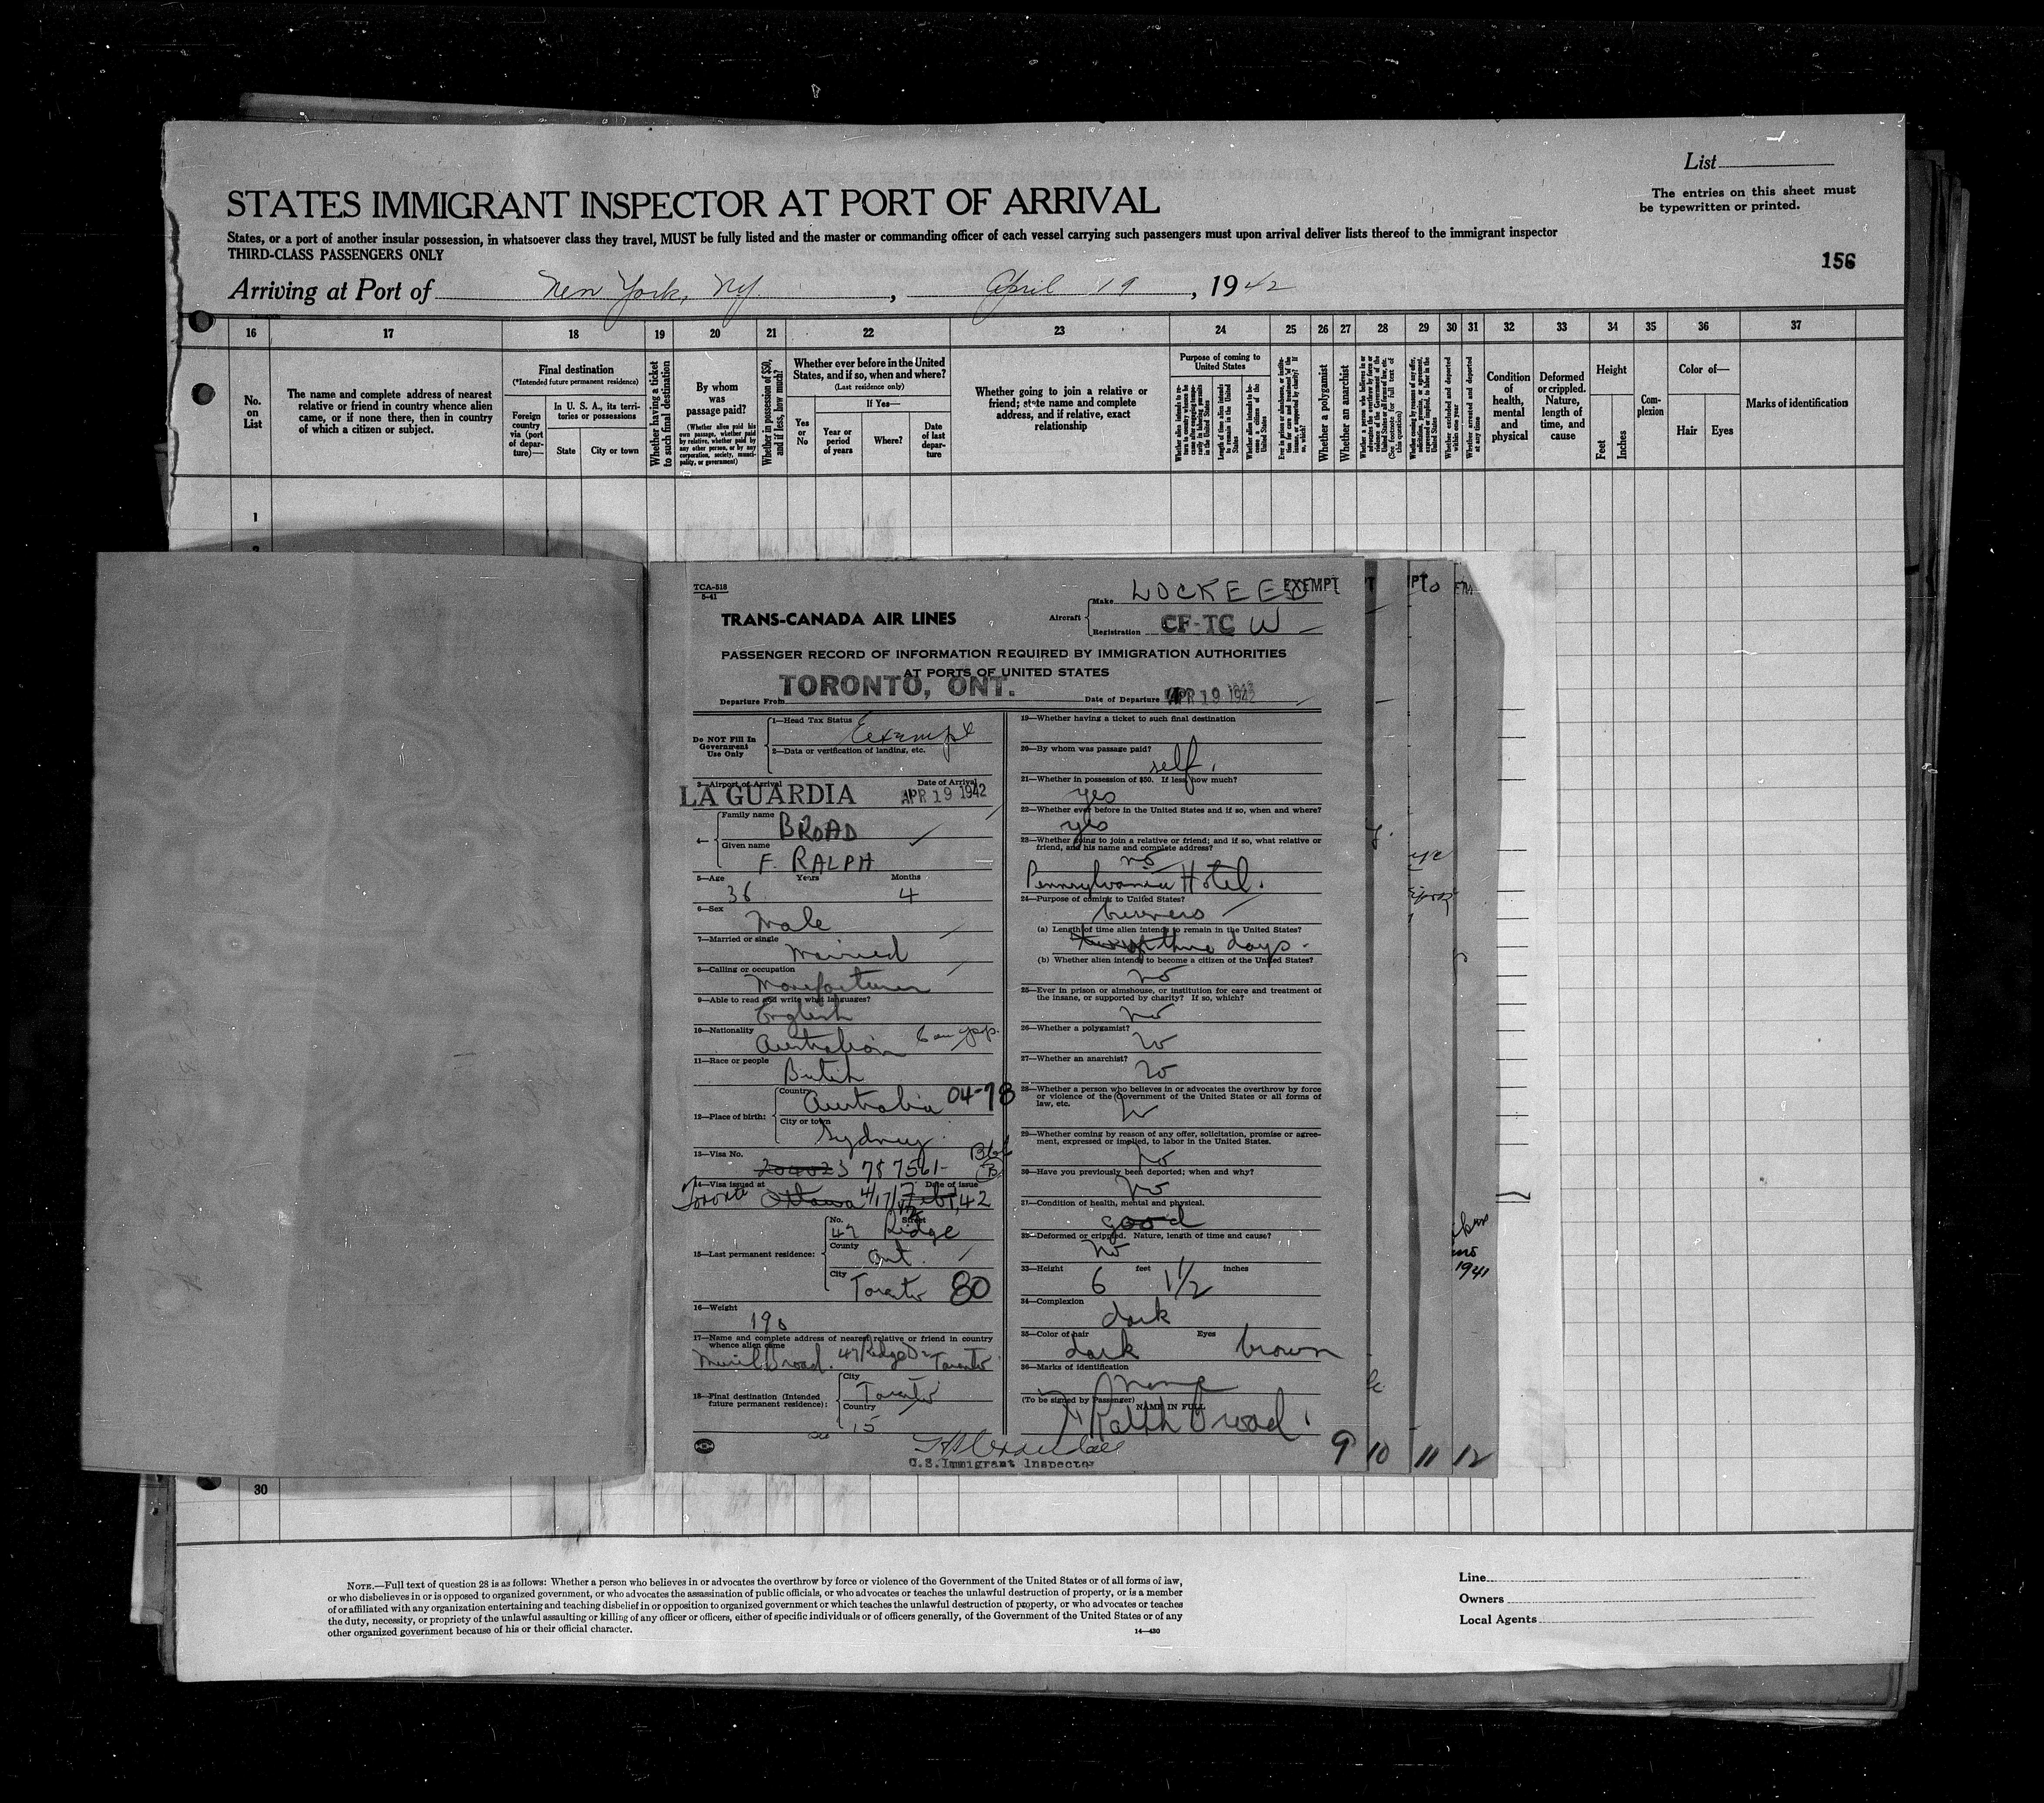 List
STATES IMMIGRANT INSPECTOR AT PORT OF ARRIVAL
The entries on this sheet must
be typewritten or printed.
States, or a port of another insular possession, in whatsoever class they travel, MUST be fully listed and the master or commanding officer of each vessel carrying such passengers must upon arrival deliver lists thereof to the immigrant inspector
THIRD-CLASS PASSENGERS ONLY
156
Arriving at Port of New York, NY. , April 19 , 1942
16 17 18 19 20 21 22 23 24 25 26 27 28 29 30 31 32 33 34 35 36 37
No.
on
List
The name and complete address of nearest
relative or friend in country whence alien
came, or if none there, then in country
of which a citizen or subject.
Final destination
(*Intended future permanent residence)
Foreign
country
via (port
of depar-
ture)—
In U. S. A., its terri-
tories or possessions
State City or town
Whether having a ticket
to such final destination
By whom
was
passage paid?
(Whether alien paid his
own passage, whether paid
by relative, whether paid by
any other person, or by any
corporation, society, munici-
pality, or government)
Whether in possession of $50,
and if less, how much?
Whether ever before in the United
States, and if so, when and where?
(Last residence only)
Yes
or
No
If Yes—
Year or
period
of years
Where?
Date
of last
depar-
ture
Whether going to join a relative or
friend; state name and complete
address, and if relative, exact
relationship
Purpose of coming to
United States
Length of time alien intends
to remain in the United
States
Whether a polygamist
Whether an anarchist
Condition
of
health,
mental
and
physical
Deformed
or crippled.
Nature,
length of
time, and
cause
Height
Feet
Inches
Com-
plexion
Color of—
Hair Eyes
Marks of identification
1
2
30
TCA-518
5-41
TRANS-CANADA AIR LINES
Aircraft
Make LOCKEED
EXEMPT
Registration CF-TC W
PASSENGER RECORD OF INFORMATION REQUIRED BY IMMIGRATION AUTHORITIES
AT PORTS OF UNITED STATES
Departure From TORONTO, ONT.
Date of Departure APR 19 1942
Do NOT Fill In
Government
Use Only
1—Head Tax Status Exempt
2—Data or verification of landing, etc.
3—Airport of Arrival LA GUARDIA
Date of Arrival APR 19 1942
4—
Family name BROAD
Given name F. RALPH
5—Age 36 Years Months 4
6—Sex Male
7—Married or single Married
8—Calling or occupation Manufacturer
9—Able to read and write what languages?
English
10—Nationality Australian
11—Race or people British
12—Place of birth:
Country Australia 04-78
City or town Sydney
13—Visa No. 204023 787561-
14—Visa issued at Toronto Ottawa 4/17/42
Date of issue
15—Last permanent residence:
No. 47 Street Ridge
County Ont.
City Toronto 80
16—Weight 190
17—Name and complete address of nearest relative or friend in country
whence alien came
Muriel Broad. 47 Ridge Dr Toronto
18—Final destination (Intended
future permanent residence):
City Toronto
Country
15
19—Whether having a ticket to such final destination
20—By whom was passage paid?
self.
21—Whether in possession of $50. If less, how much?
yes
22—Whether ever before in the United States and if so, when and where?
yes
23—Whether going to join a relative or friend; and if so, what relative or
friend, and his name and complete address?
no
Pennsylvania Hotel.
24—Purpose of coming to United States?
business
(a) Length of time alien intends to remain in the United States?
three days.
(b) Whether alien intends to become a citizen of the United States?
no
25—Ever in prison or almshouse, or institution for care and treatment of
the insane, or supported by charity? If so, which?
no
26—Whether a polygamist?
no
27—Whether an anarchist?
no
28—Whether a person who believes in or advocates the overthrow by force
or violence of the Government of the United States or all forms of
law, etc.
no
29—Whether coming by reason of any offer, solicitation, promise or agree-
ment, expressed or implied, to labor in the United States.
no
30—Have you previously been deported; when and why?
no
31—Condition of health, mental and physical.
good
32—Deformed or crippled. Nature, length of time and cause?
no
33—Height 6 feet 1 1/2 inches
34—Complexion dark
35—Color of hair dark Eyes brown
36—Marks of identification
None
(To be signed by Passenger) NAME IN FULL
F Ralph Broad.
U.S. Immigrant Inspector
9 10 11 12
1941
NOTE.—Full text of question 28 is as follows: Whether a person who believes in or advocates the overthrow by force or violence of the Government of the United States or of all forms of law,
or who disbelieves in or is opposed to organized government, or who advocates the assassination of public officials, or who advocates or teaches the unlawful destruction of property, or is a member
of or affiliated with any organization entertaining and teaching disbelief in or opposition to organized government or which teaches the unlawful destruction of property, or who advocates or teaches
the duty, necessity, or propriety of the unlawful assaulting or killing of any officer or officers, either of specific individuals or of officers generally, of the Government of the United States or of any
other organized government because of his or their official character.
14—430
Line
Owners
Local Agents